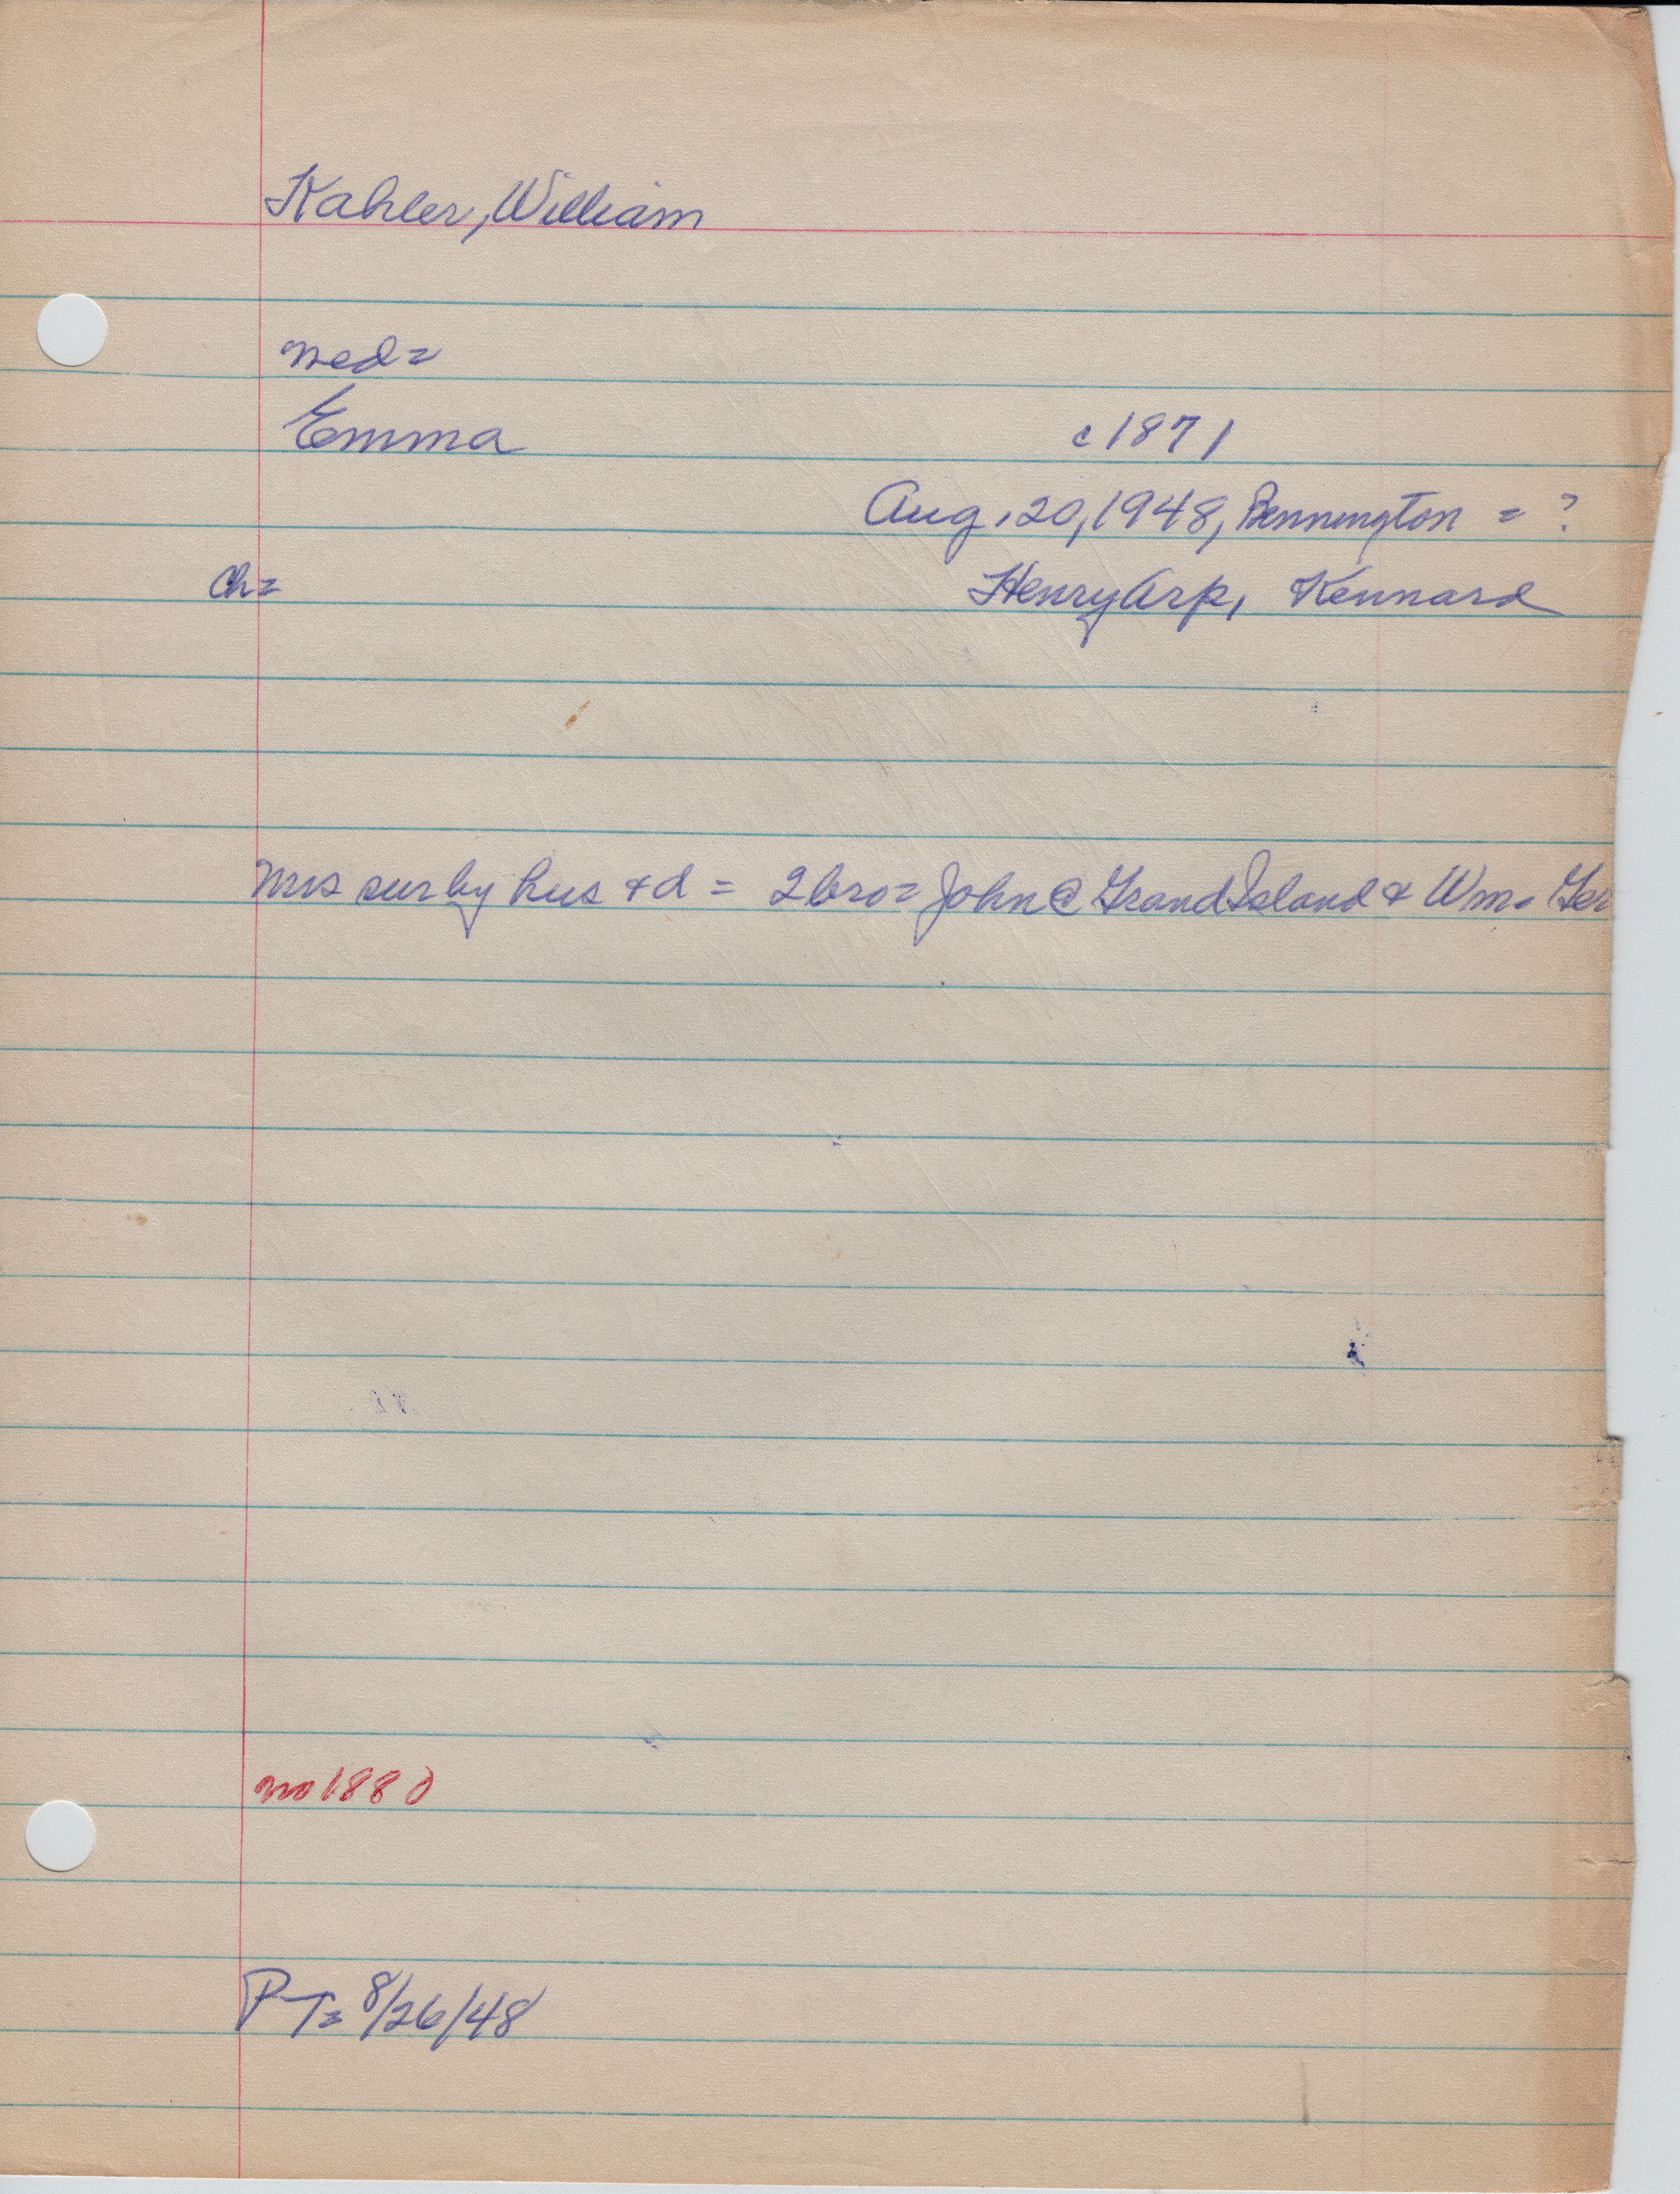 Kahler, William
med=
Emma c1871
Aug. 20, 1948, Bennington = ?
ch= Henry Arp, Kennard
Mrs sur by hus & d = 2 bro = John @ Grand Island & Wm. Ger
no 1880
PT= 8/26/48